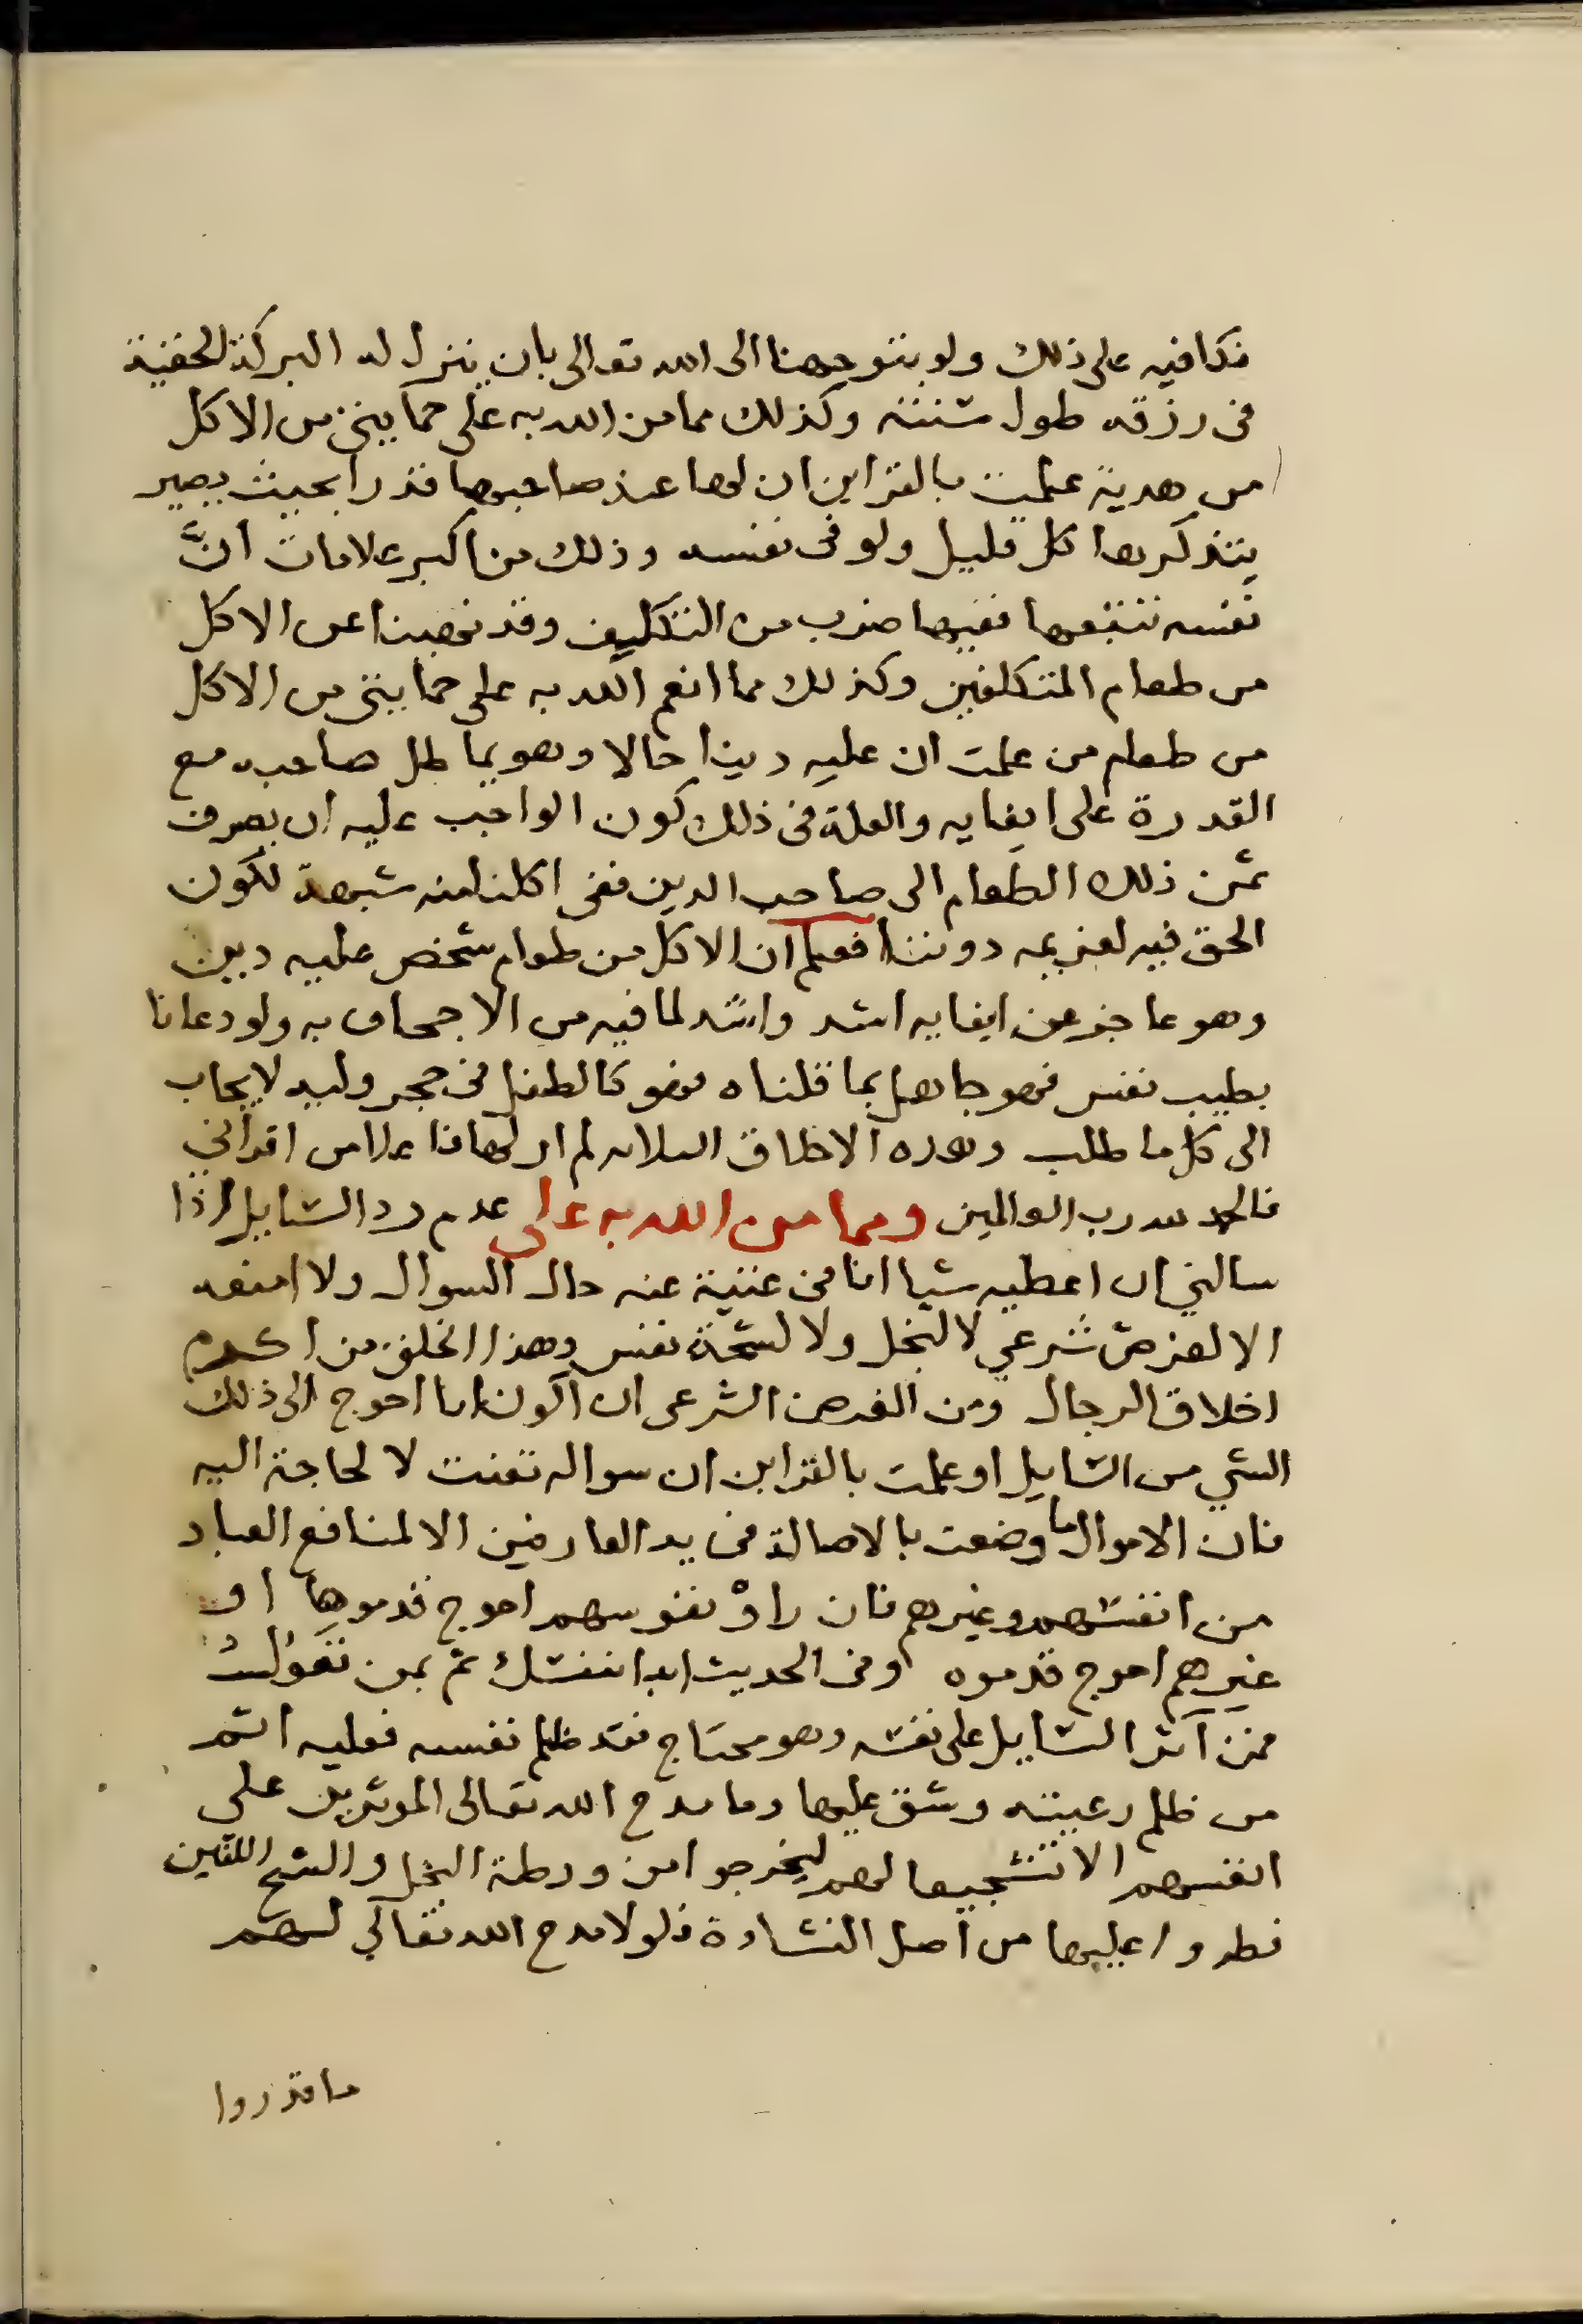 نكافيه على ذلك ولو بتوجهنا الى الله تعالى بان ينزل له البركة الخفية
فى رزقه طول سنته وكذلك مما من الله به على حمايتى من الاكل
من هدية علمت بالقراين ان لها عند صاحبها قدرا بحيث يصير
يتذكرها كل قليل ولو فى نفسه وذلك من اكبر علامات انَّ
نفسه تتبعها ففيها ضرب من التكليف وقد نهينا عن الاكل
من طعام المتكلفين وكذلك مما انعم الله به على حمايتى من الاكل
من طعام من علمت ان عليه دينا حالا وهو يماطل صاحبه مع
القدرة على ايفايه والعلة فى ذلك كون الواجب عليه ان يصرف
ثمن ذلك الطعام الى صاحب الدين ففى اكلنا منه شبهة لكون
الحق فيه لغريمه دوننا فعلم ان الاكل من طعام شخص عليه دين
وهو عاجز عن ايفايه اشد واشد لما فيه من الاجحاف به ولو دعانا
بطيب نفس فهو جاهل بما قلناه فهو كالطفل فى حجر وليه لا يجاب
الى كل ما طلب وهذه الاخلاق الثلاثه لم ار لها فاعلا من اقرانى
فالحمد لله رب العالمين ومما من الله به على عدم رد السايل اذا
سالنى ان اعطيه شيا انا فى غنية عنه حال السوال ولا امنعه
الا لغرض شرعي لا لبخل ولا لشحة نفس وهذا الخلق من اكرم
اخلاق الرجال ومن الغرض الشرعى ان اكون انا احوج الى ذلك
الشي من السايل او علمت بالقراين ان سواله تعنت لا لحاجة اليه
فان الاموال ما وضعت بالاصالة فى يد العارفين الا لمنافع العباد
من انفسهم وغيرهم فان راوْ نفوسهم احوج قدموها او
غيرهم احوج قدموه وفى الحديث ابدا بنفسك ثم بمن تعول
فمن آثر السايل على نفسه وهو محتاج فقد ظلم نفسه فعليه اثم
من ظلم رعيته وشق عليها وما مدح الله تعالى الموثرين على
انفسهم الا تشجيعا لهم ليخرجوا من ورطة البخل والشح اللذين
فطروا عليها من اصل النشاة فلولا مدح الله تعالى لهم
ما قدروا